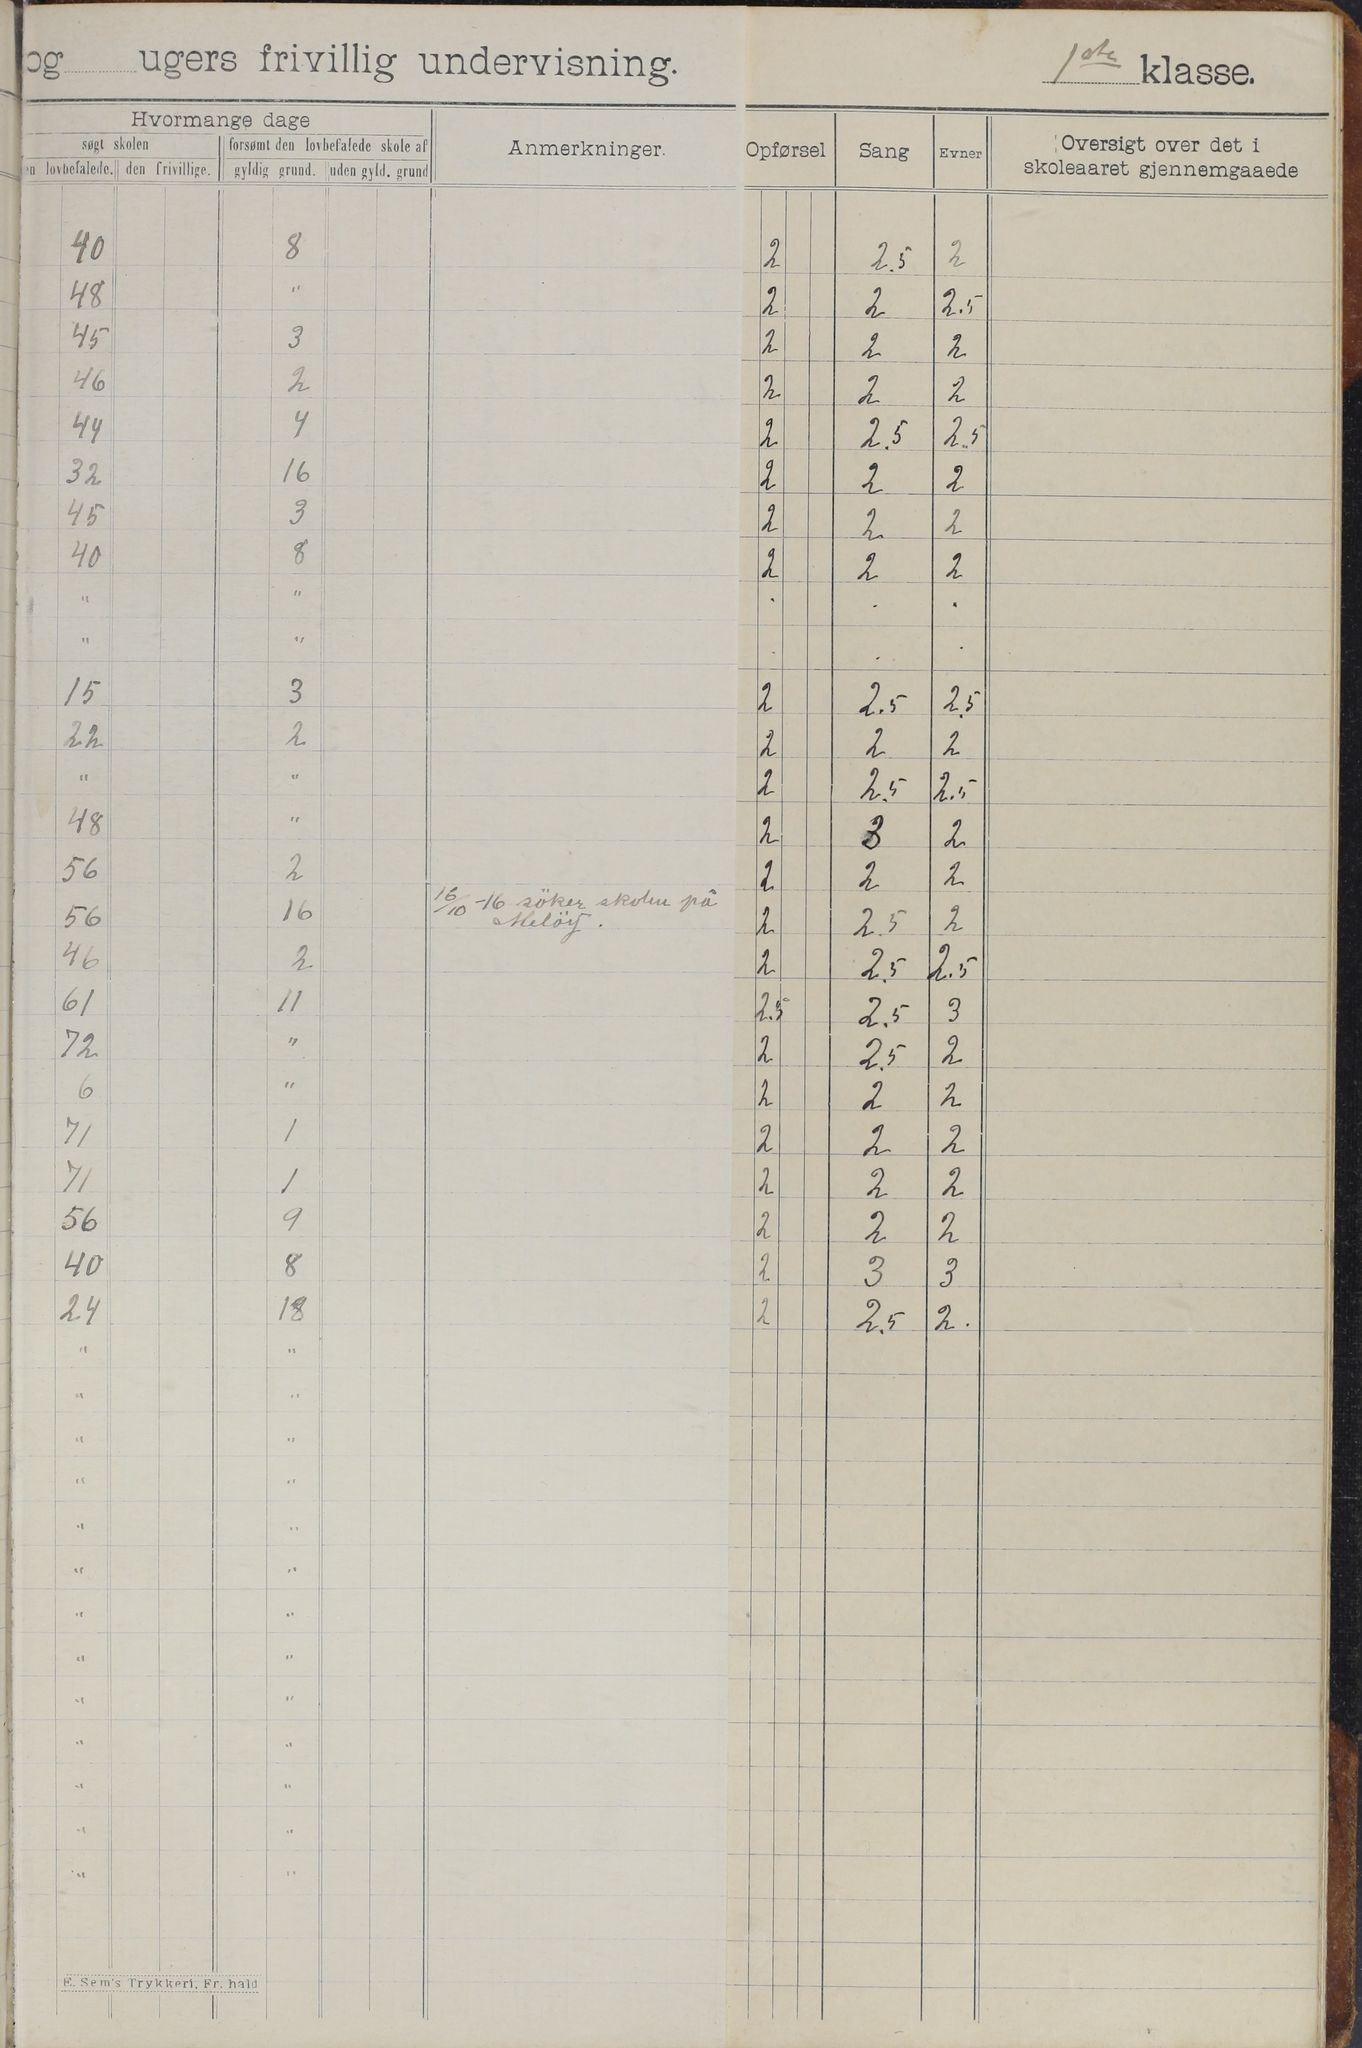 og ugers frivillig undervisning. 1ste klasse.
Hvormange dage
søgt skolen forsømt den lovbefalede skole af
Anmerkninger. Opførsel Sang Evner Oversigt over det i
lovbefalede. den frivillige. gyldig grund. uden gyld. grund skoleaaret gjennemgaaede
40 8 2 2.5 2
48 " 2 2 2.5
45 3 2 2 2
46 2 2 2 2
44 4 2 2.5 2.5
32 16 2 2 2
45 3 2 2 2
40 8 2 2 2
" " . . .
" " . . .
15 3 2 2.5 2.5
22 2 2 2 2
" " 2 2.5 2.5
48 " 2 3 2
56 2 2 2 2
56 16 16/10 -16 söker skolen på 2 2.5 2
Melöy.
46 2 2 2.5 2.5
61 11 2.5 2.5 3
72 " 2 2.5 2
6 " 2 2 2
71 1 2 2 2
71 1 2 2 2
56 9 2 2 2
40 8 2 3 3
24 18 2 2.5 2.
" "
" "
" "
" "
" "
" "
" "
" "
" "
" "
" "
" "
" "
E. Sem's Trykkeri, Fr. hald